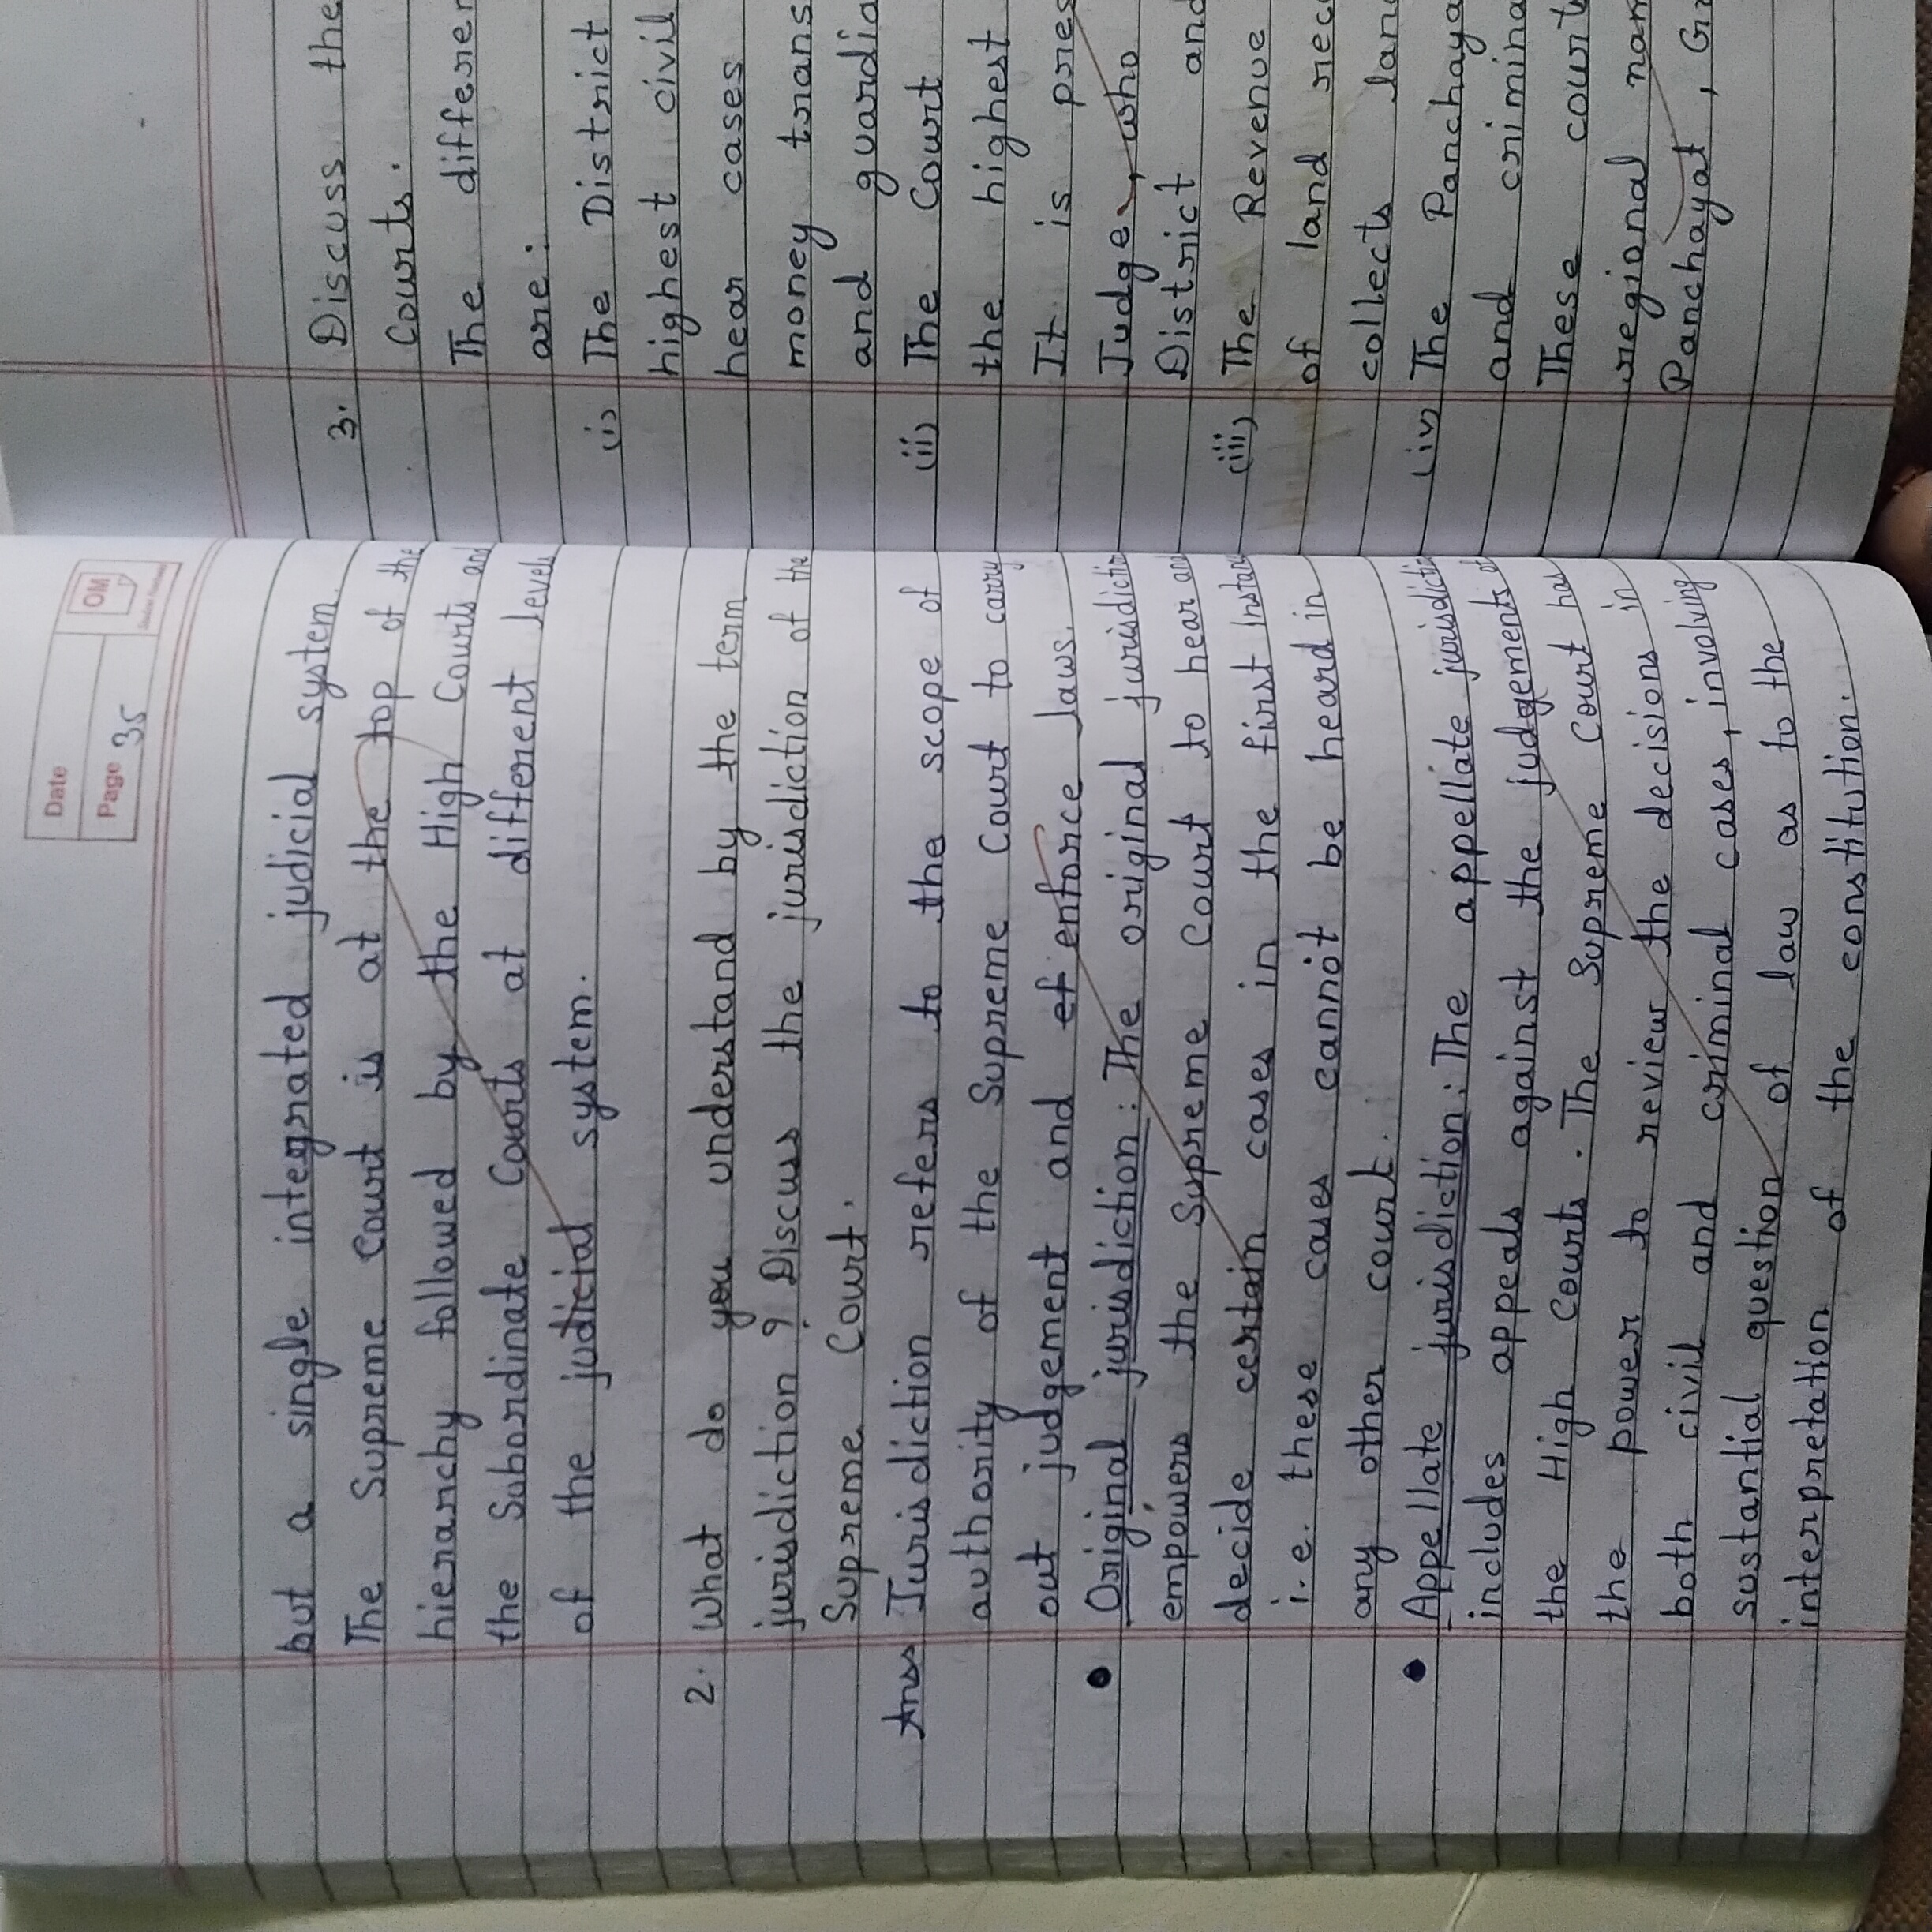 Date
Page 35
OM
but a single integrated judicial system.
The Supreme Court is at the top of the
hierarchy followed by the High Courts and
the Subordinate Courts at different levels
of the judicial system.
2. What do you understand by the term
jurisdiction? Discuss the jurisdiction of the
Supreme Court.
Ans Jurisdiction refers to the scope of
authority of the Supreme Court to carry
out judgement and ef enforce laws.
• Original jurisdiction: The original jurisdictio
empowers the Supreme Court to hear an
decide certain cases in the first instan
i.e. these cases cannot be heard in
any other court.
• Appellate jurisdiction: The appellate jurisdicti
includes appeals against the judgements of
the High Courts. The Supreme Court has
the power to review the decisions in
both civil and criminal cases, involving
sustantial question of law as to the
interpretation of the constitution.
3. Discuss the
Courts.
The differen
are:
(i) The District
highest civil
hear cases
money trans
and guardia
(ii) The Court
the highest
It is pres
Judge, who
District and
(iii) The Revenue
of land rec
collects lan
(iv) The Panchaya
and crimina
These court
regional nam
Panchayat, Gr